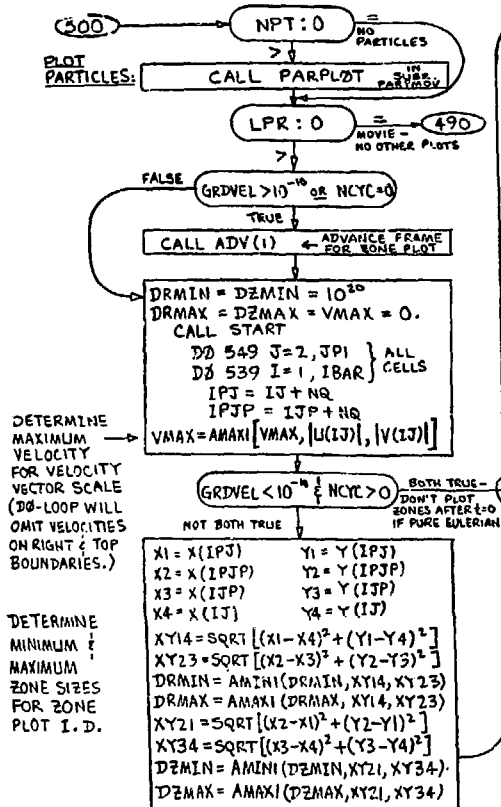 500
NPT : 0
=
NO PARTICLES
>
PLOT PARTICLES:
CALL PARPLOT
IN SUBR. PARMOV
LPR : 0
=
490
MOVIE –
NO OTHER PLOTS
>
FALSE
GRDVEL > 10⁻¹⁰ OR NCYC=0
TRUE
CALL ADV(1) ← ADVANCE FRAME FOR ZONE PLOT
DRMIN = DZMIN = 10²⁰
DRMAX = DZMAX = VMAX = 0.
CALL START
DØ 549 J=2, JP1
DØ 539 I=1, IBAR
} ALL CELLS
IPJ = IJ + NQ
IPJP = IJP + NQ
VMAX = AMAX1[VMAX, |U(IJ)|, |V(IJ)|]
DETERMINE
MAXIMUM
VELOCITY
FOR VELOCITY
VECTOR SCALE
(DØ-LOOP WILL
OMIT VELOCITIES
ON RIGHT & TOP
BOUNDARIES.)
GRDVEL < 10⁻¹⁰ & NCYC > 0
BOTH TRUE –
DON'T PLOT
ZONES AFTER t=0
IF PURE EULERIAN
NOT BOTH TRUE
X1 = X(IPJ) Y1 = Y(IPJ)
X2 = X(IPJP) Y2 = Y(IPJP)
X3 = X(IJP) Y3 = Y(IJP)
X4 = X(IJ) Y4 = Y(IJ)
XY14 = SQRT[(X1-X4)² + (Y1-Y4)²]
XY23 = SQRT[(X2-X3)² + (Y2-Y3)²]
DRMIN = AMIN1(DRMIN, XY14, XY23)
DRMAX = AMAX1(DRMAX, XY14, XY23)
XY21 = SQRT[(X2-X1)² + (Y2-Y1)²]
XY34 = SQRT[(X3-X4)² + (Y3-Y4)²]
DZMIN = AMIN1(DZMIN, XY21, XY34)
DZMAX = AMAX1(DZMAX, XY21, XY34)
DETERMINE
MINIMUM &
MAXIMUM
ZONE SIZES
FOR ZONE
PLOT I.D.